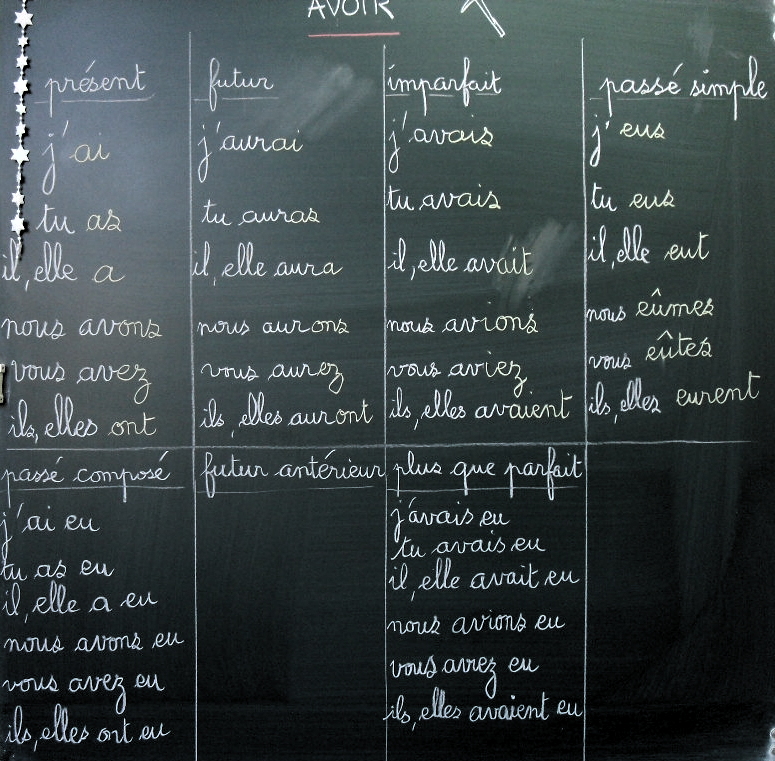 AVOIR
présent
j'ai
tu as
il, elle a
nous avons
vous avez
ils, elles ont
futur
j'aurai
tu auras
il, elle aura
nous aurons
vous aurez
ils, elles auront
imparfait
j'avais
tu avais
il, elle avait
nous avions
vous aviez
ils, elles avaient
passé simple
j' eus
tu eus
il, elle eut
nous eûmes
vous eûtes
ils, elles eurent
passé composé
j'ai eu
tu as eu
il, elle a eu
nous avons eu
vous avez eu
ils, elles ont eu
futur antérieur
plus que parfait
j'avais eu
tu avais eu
il, elle avait eu
nous avions eu
vous aviez eu
ils, elles avaient eu